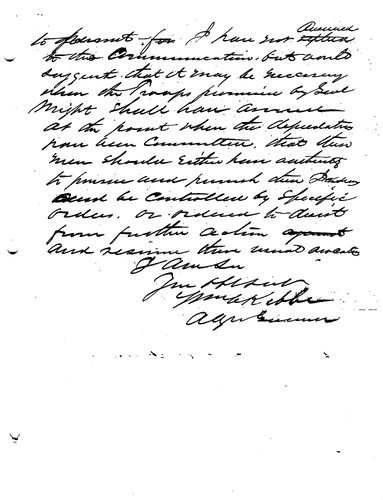 answered
to permit for I have not replied
to this Communication. but would
suggest. that it may be necessary
when the Troops promised by Genl
Wright shall have arrived
at the point where the depredations
have been Committed, that these
men should Either have authority
to pursue and punish the Indians
and be controlled by Specific
orders. or ordered to desist
from further action
and resume their usual avocations
I am Sir
Your Obt Servt
Wm C Kibbe
Adjt General